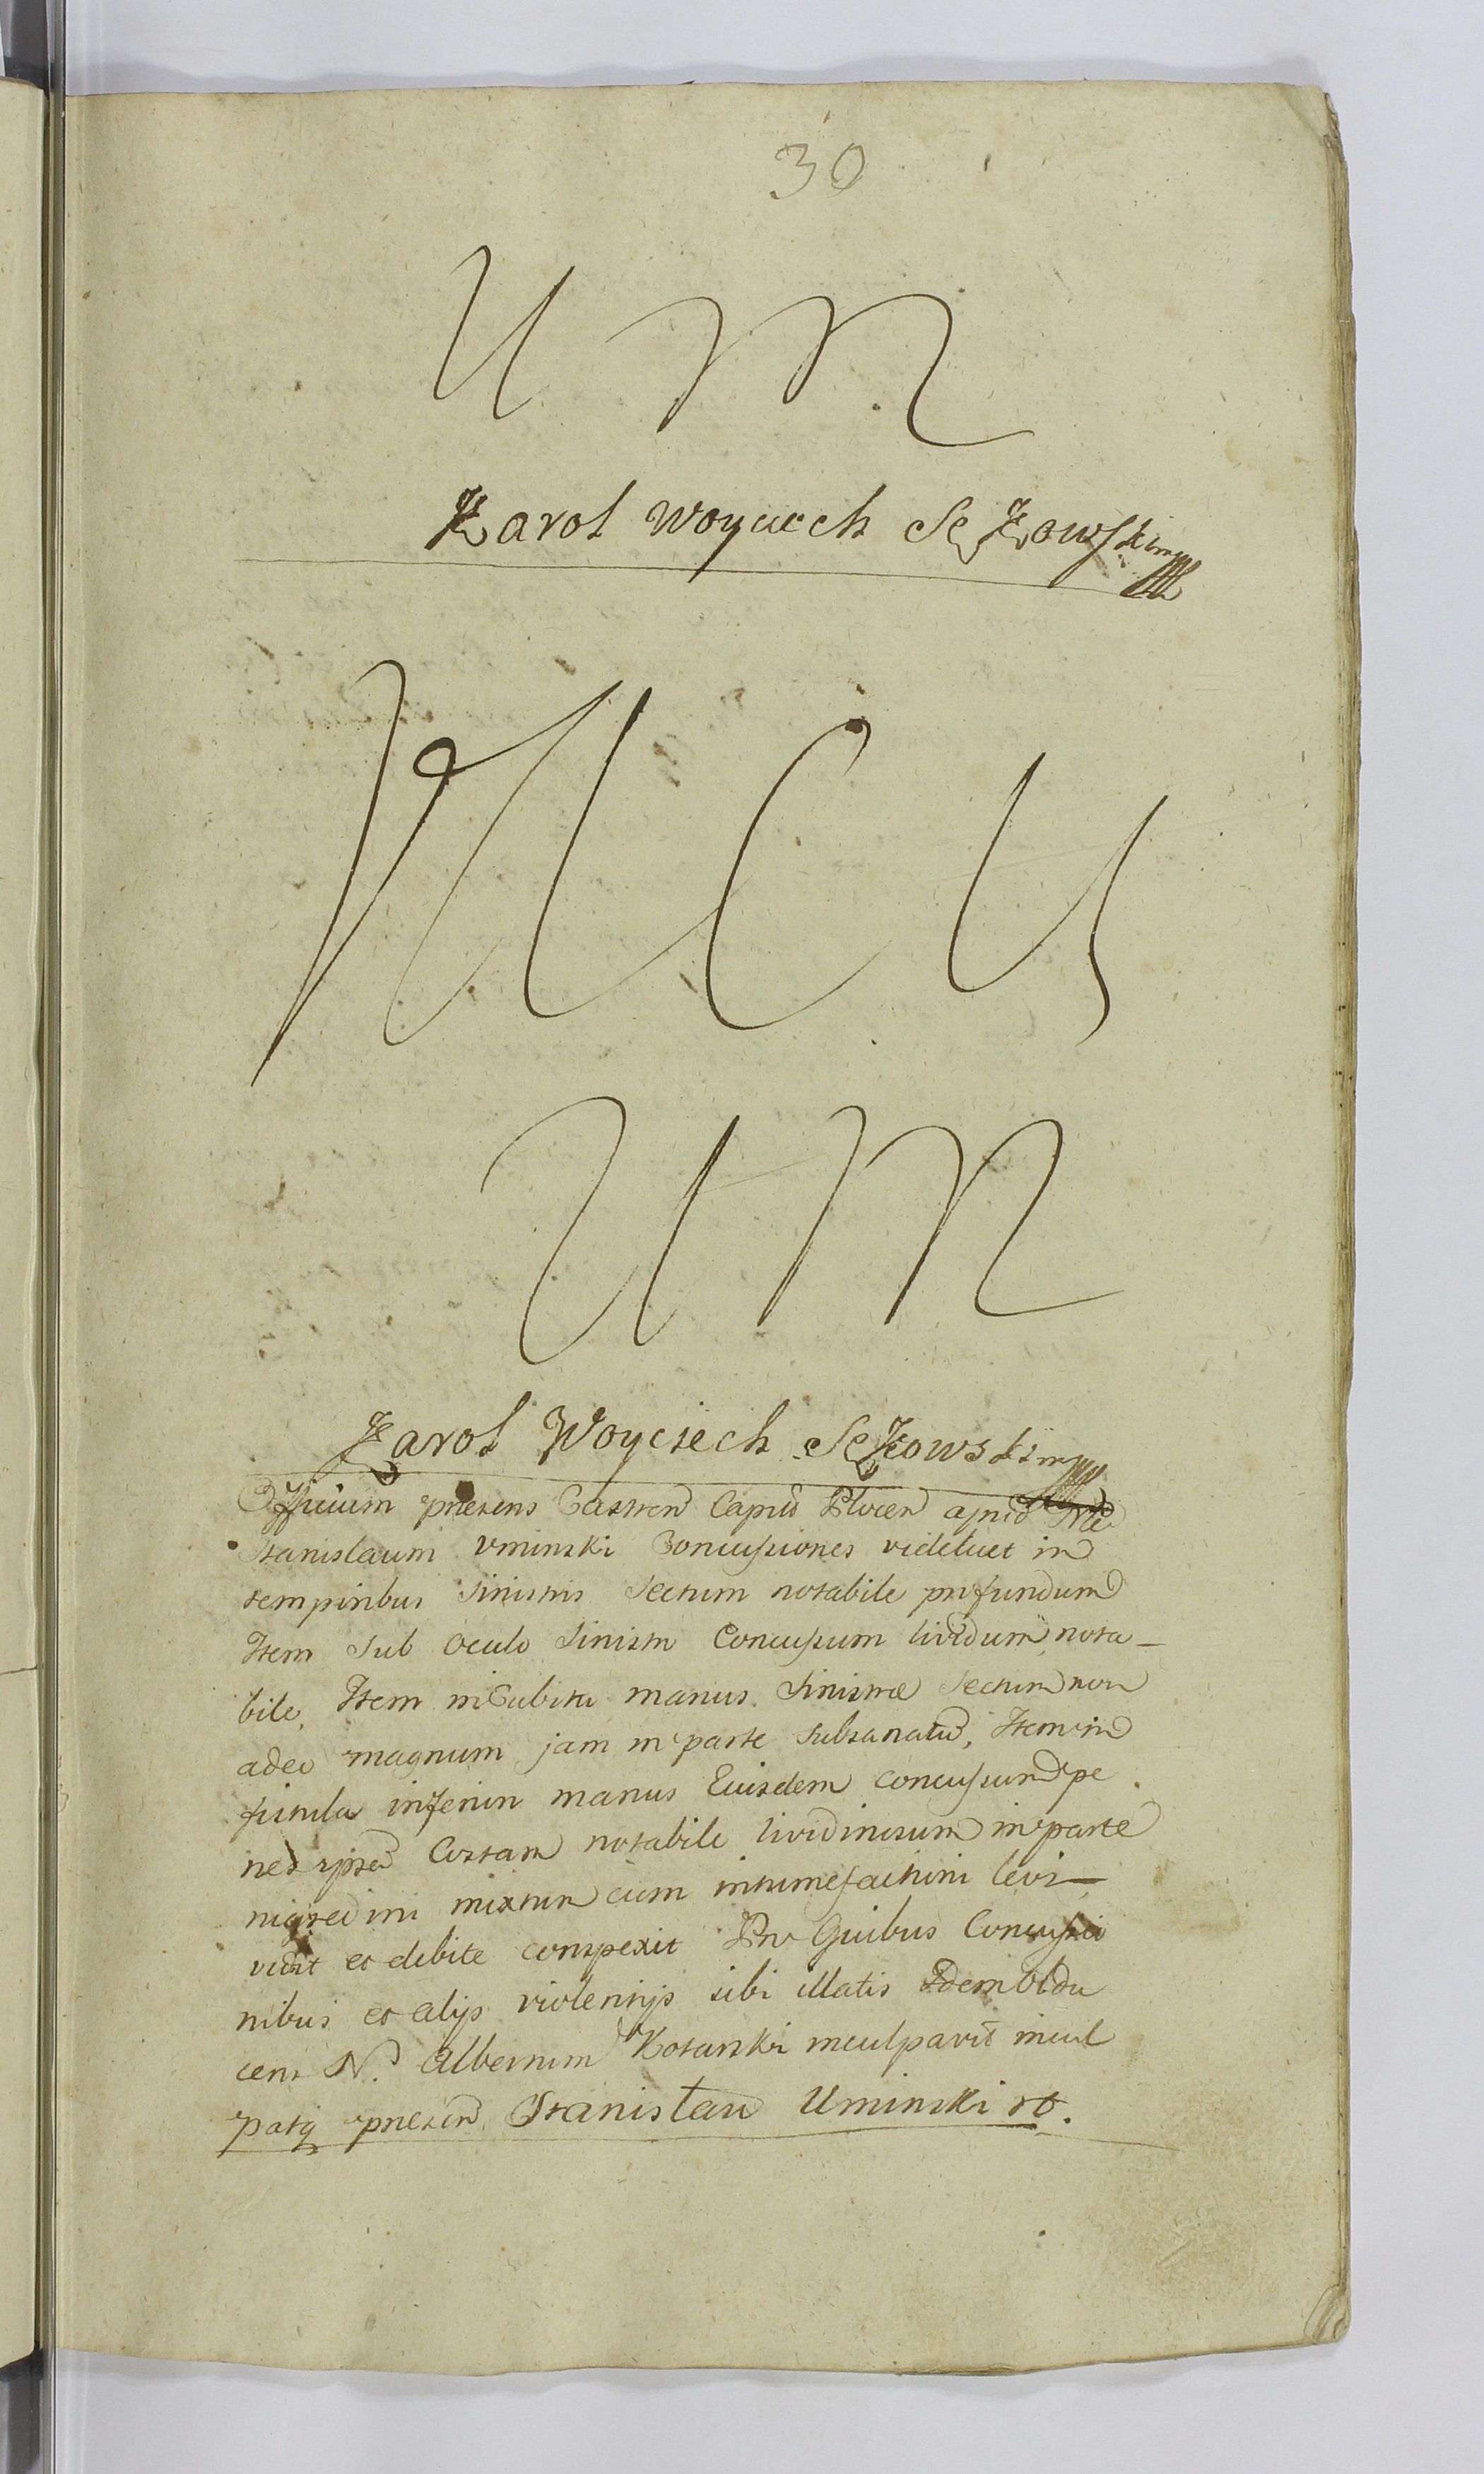 30
U M
Karol Woyciech Sękowski mp
M C U
U M
Karol Woyciech Sękowski mp
Officium praesens Castren Capit Plocen apud Nlem
Stanislaum Uminski Concussiones videlicet in
temporibus sinistris Sectum notabile profundum
Item sub oculo sinistro Concussum lividum nota-
bile, Item in Cubitu manus Sinistrae Sectum non
adeo magnum jam in parte subsanatu, Item in
fistula inferiori manus Eiusdem concussum pe
nes ipsam Costam notabile lividinosum in parte
nigredini mixtum cum intumefactioni levi
vidit et debite conspexit Pro Quibus Concussio
nibus et alijs violentijs sibi illatis Idem Obdu
cens N. Albertum Kotarski inculpavit incul
patq praesen Stanislau Uminski rt.